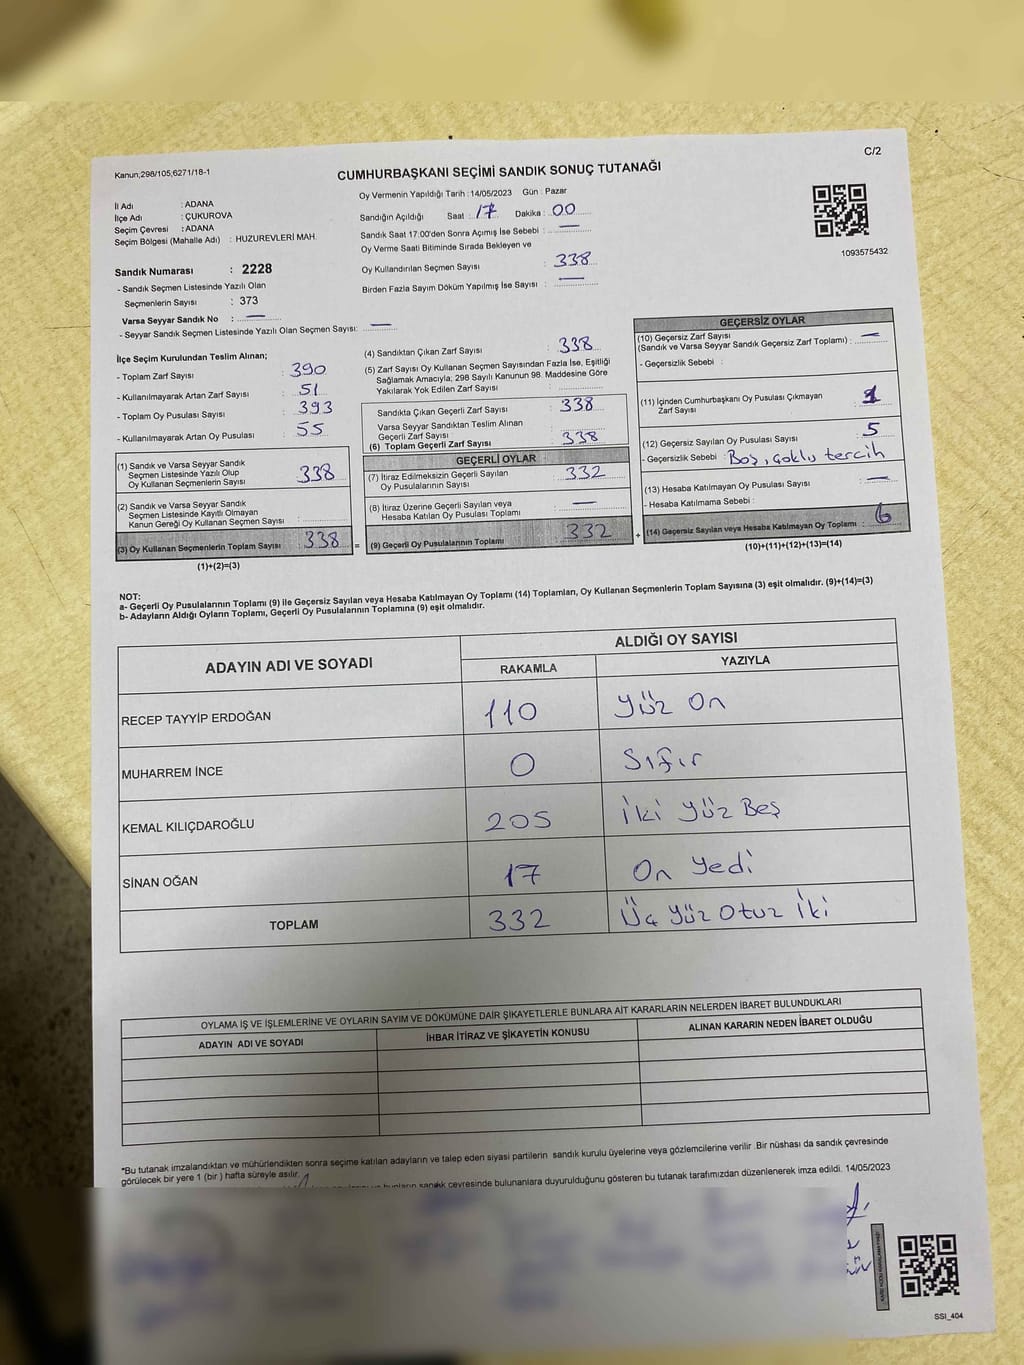 C/2
Kanun;298/105,6271/18-1
CUMHURBAŞKANI SEÇİMİ SANDIK SONUÇ TUTANAĞI
Oy Vermenin Yapıldığı Tarih : 14/05/2023 Gün : Pazar
İl Adı : ADANA
İlçe Adı : ÇUKUROVA
Seçim Çevresi : ADANA
Seçim Bölgesi (Mahalle Adı) : HUZUREVLERİ MAH.
Sandık Numarası : 2228
- Sandık Seçmen Listesinde Yazılı Olan
Seçmenlerin Sayısı : 373
Varsa Seyyar Sandık No : —
- Seyyar Sandık Seçmen Listesinde Yazılı Olan Seçmen Sayısı: —
Sandığın Açıldığı Saat : 17 Dakika : 00
Sandık Saat 17:00'den Sonra Açımış İse Sebebi : —
Oy Verme Saati Bitiminde Sırada Bekleyen ve
Oy Kullandırılan Seçmen Sayısı : 338
Birden Fazla Sayım Döküm Yapılmış İse Sayısı : —
1093575432
İlçe Seçim Kurulundan Teslim Alınan;
- Toplam Zarf Sayısı : 390
- Kullanılmayarak Artan Zarf Sayısı : 51
- Toplam Oy Pusulası Sayısı : 393
- Kullanılmayarak Artan Oy Pusulası : 55
(1) Sandık ve Varsa Seyyar Sandık
Seçmen Listesinde Yazılı Olup
Oy Kullanan Seçmenlerin Sayısı : 338
(2) Sandık ve Varsa Seyyar Sandık
Seçmen Listesinde Kayıtlı Olmayan
Kanun Gereği Oy Kullanan Seçmen Sayısı :
(3) Oy Kullanan Seçmenlerin Toplam Sayısı : 338 =
(1)+(2)=(3)
(4) Sandıktan Çıkan Zarf Sayısı : 338
(5) Zarf Sayısı Oy Kullanan Seçmen Sayısından Fazla İse, Eşitliği
Sağlamak Amacıyla; 298 Sayılı Kanunun 98. Maddesine Göre
Yakılarak Yok Edilen Zarf Sayısı :
Sandıkta Çıkan Geçerli Zarf Sayısı : 338
Varsa Seyyar Sandıktan Teslim Alınan
Geçerli Zarf Sayısı :
(6) Toplam Geçerli Zarf Sayısı : 338
GEÇERLİ OYLAR
(7) İtiraz Edilmeksizin Geçerli Sayılan
Oy Pusulalarının Sayısı : 332
(8) İtiraz Üzerine Geçerli Sayılan veya
Hesaba Katılan Oy Pusulası Toplamı : —
(9) Geçerli Oy Pusulalarının Toplamı : 332 +
GEÇERSİZ OYLAR
(10) Geçersiz Zarf Sayısı
(Sandık ve Varsa Seyyar Sandık Geçersiz Zarf Toplamı) : —
- Geçersizlik Sebebi :
(11) İçinden Cumhurbaşkanı Oy Pusulası Çıkmayan
Zarf Sayısı : 1
(12) Geçersiz Sayılan Oy Pusulası Sayısı : 5
- Geçersizlik Sebebi : Boş, çoklu tercih
(13) Hesaba Katılmayan Oy Pusulası Sayısı : —
- Hesaba Katılmama Sebebi :
(14) Geçersiz Sayılan veya Hesaba Katılmayan Oy Toplamı : 6
(10)+(11)+(12)+(13)=(14)
NOT:
a- Geçerli Oy Pusulalarının Toplamı (9) ile Geçersiz Sayılan veya Hesaba Katılmayan Oy Toplamı (14) Toplamları, Oy Kullanan Seçmenlerin Toplam Sayısına (3) eşit olmalıdır. (9)+(14)=(3)
b- Adayların Aldığı Oyların Toplamı, Geçerli Oy Pusulalarının Toplamına (9) eşit olmalıdır.
ADAYIN ADI VE SOYADI
ALDIĞI OY SAYISI
RAKAMLA YAZIYLA
RECEP TAYYİP ERDOĞAN 110 Yüz On
MUHARREM İNCE 0 Sıfır
KEMAL KILIÇDAROĞLU 205 İki Yüz Beş
SİNAN OĞAN 17 On Yedi
TOPLAM 332 Üç Yüz Otuz İki
OYLAMA İŞ VE İŞLEMLERİNE VE OYLARIN SAYIM VE DÖKÜMÜNE DAİR ŞİKAYETLERLE BUNLARA AİT KARARLARIN NELERDEN İBARET BULUNDUKLARI
ADAYIN ADI VE SOYADI İHBAR İTİRAZ VE ŞİKAYETİN KONUSU ALINAN KARARIN NEDEN İBARET OLDUĞU
*Bu tutanak imzalandıktan ve mühürlendikten sonra seçime katılan adayların ve talep eden siyasi partilerin sandık kurulu üyelerine veya gözlemcilerine verilir .Bir nüshası da sandık çevresinde
görülecek bir yere 1 (bir ) hafta süreyle asılır.
sandık çevresinde bulunanlara duyurulduğunu gösteren bu tutanak tarafımızdan düzenlenerek imza edildi. 14/05/2023
SSI_404